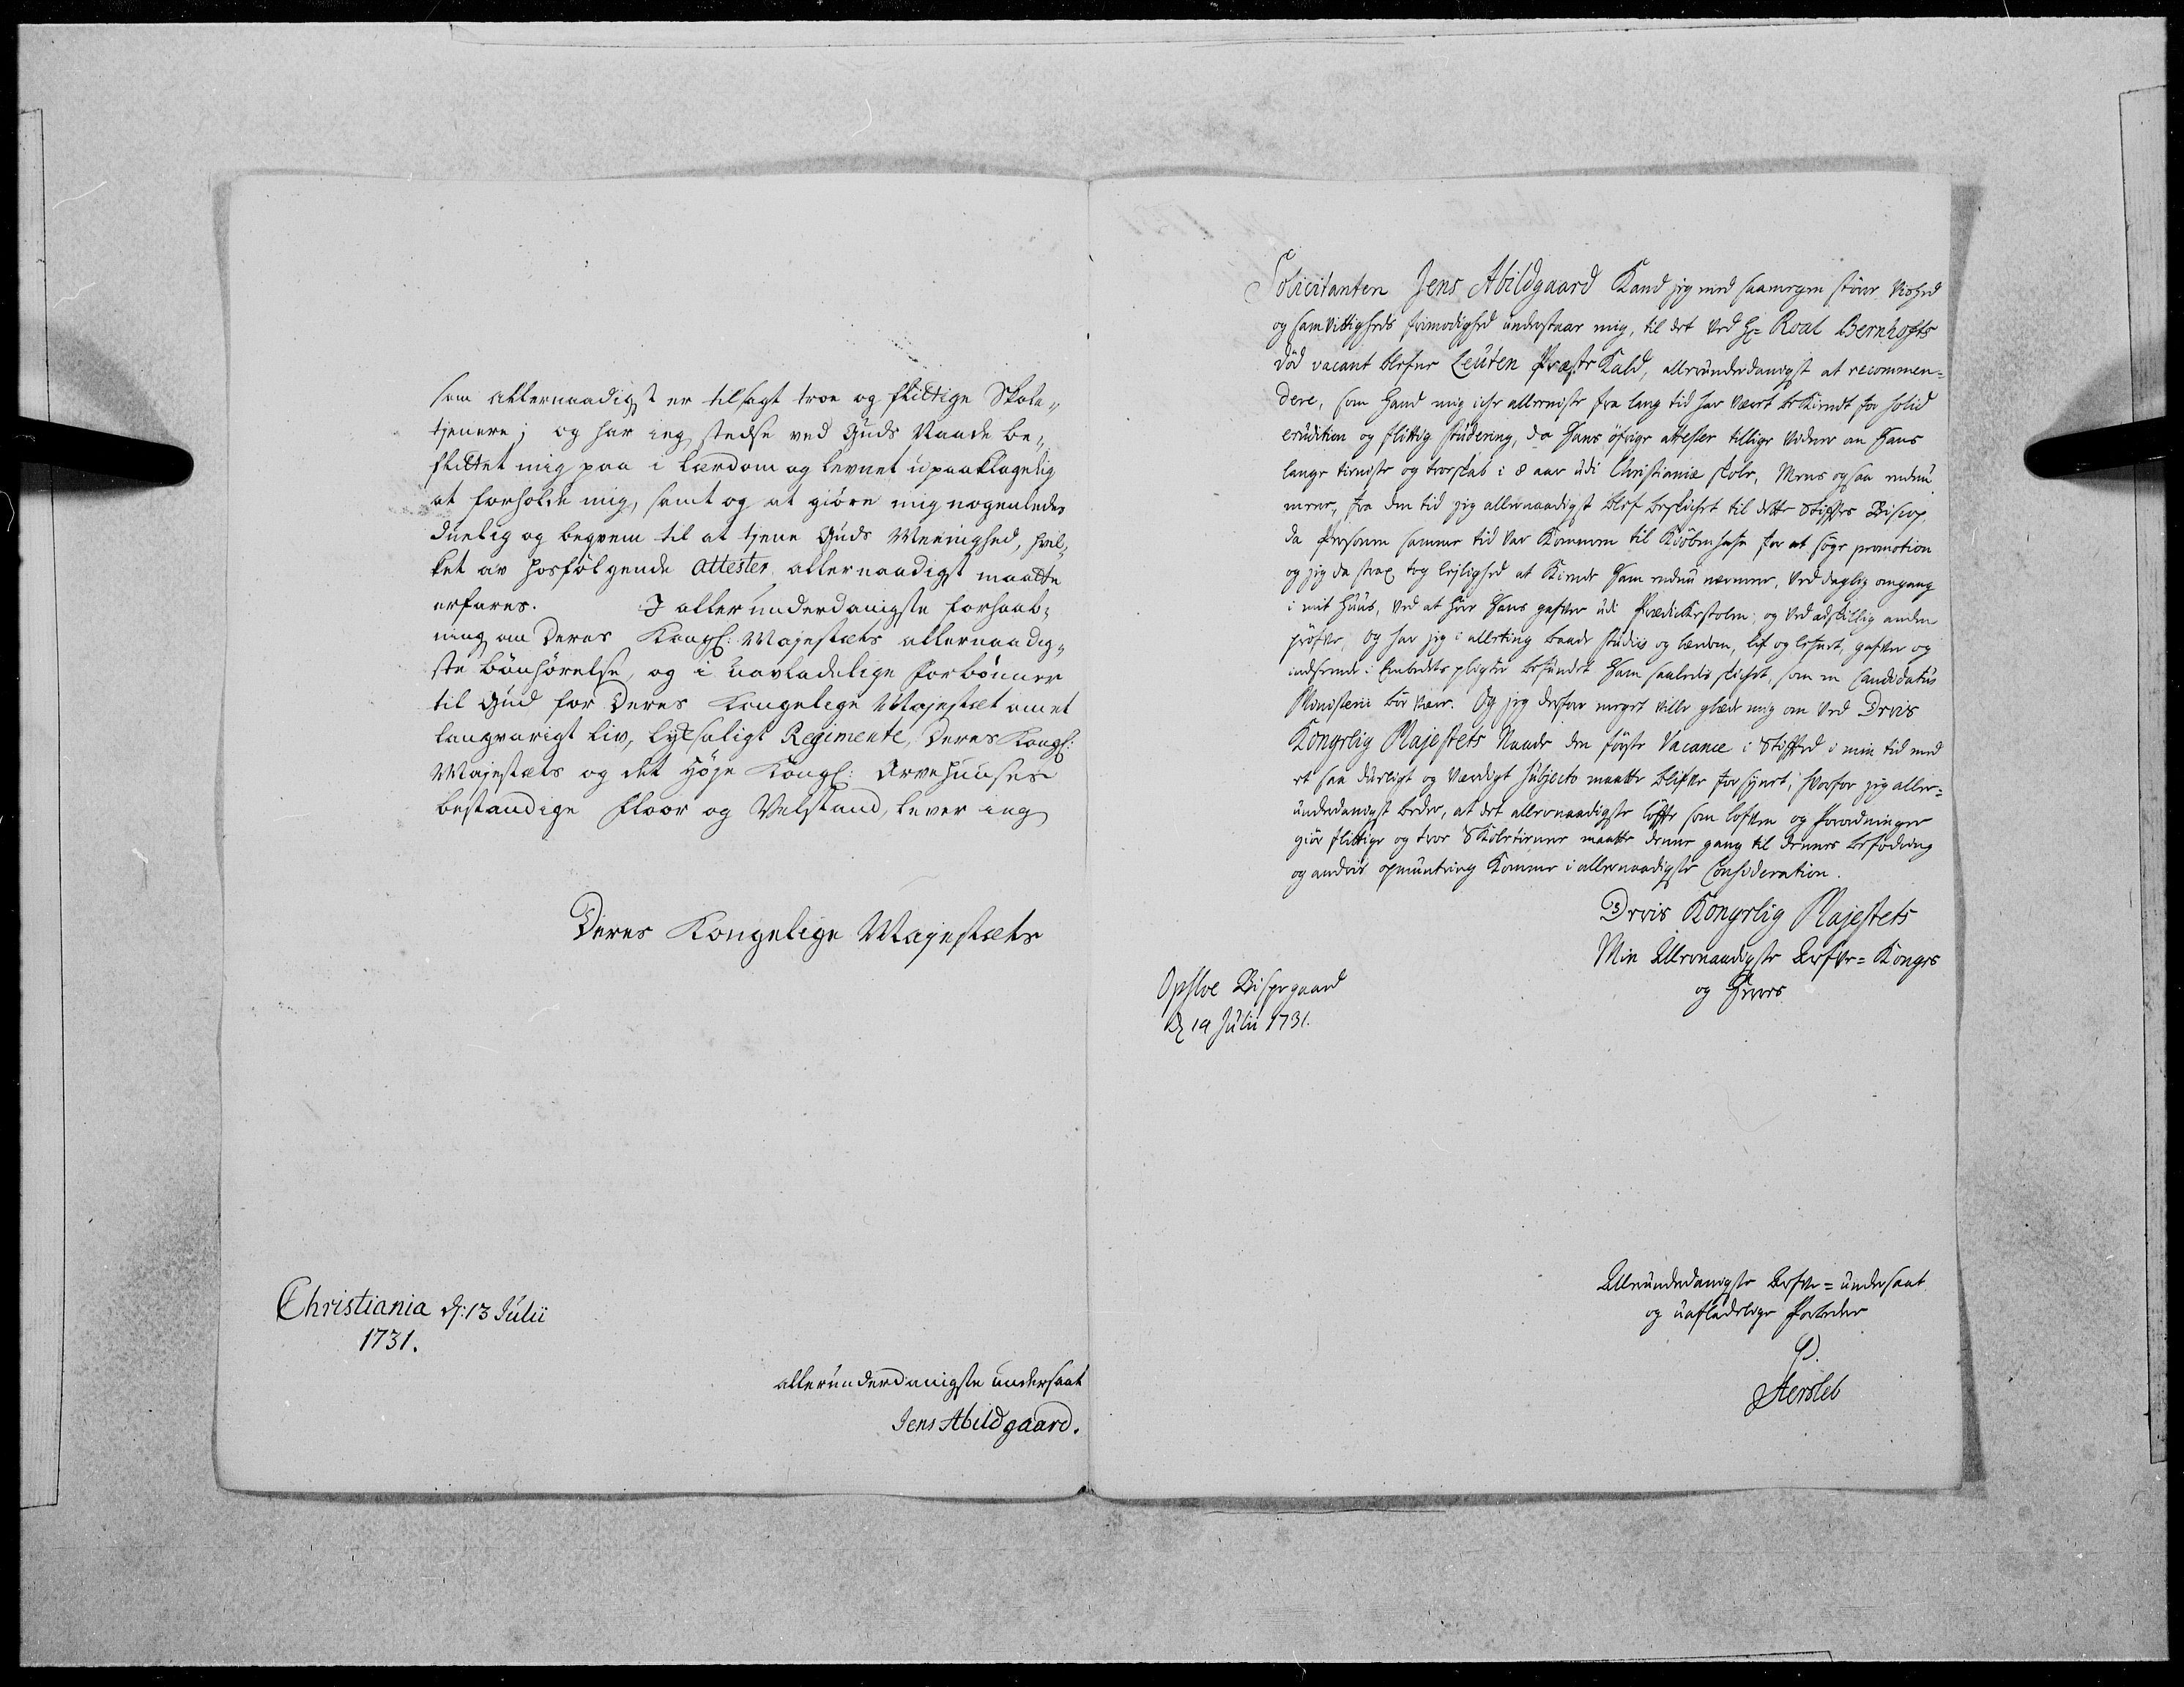 som allernaadigst er tilsagt troe og flittige Skole„
tjenere; og har ieg stedse ved Guds Naade be„
flittet mig paa i Lærdom og Levnet upaaklagelig
at forholde mig, samt og at giøre mig nogenledes
duelig og beqvem til at tjene Guds Meenighed, hvil„
ket av hosfølgende Attester allernaadigst maatte
erfares. I allerunderdanigste forhaab„
ning om Deres Kongl: Majestæts allernaadig„
ste bönhörelse, og i uavladelige forbönner
til Gud for Deres Kongelige Majestæt om et
langvarigt Liv, lyksaligt Regimente, Deres Kongl:
Majestæts og det Høje Kongl: Arvehuuses
bestandige floor og Velstand, lever ieg
Deres Kongelige Majestæts
Christiania d: 13 Julii
1731.
allerunderdanigste undersaat
Jens Abildgaard.
Solicitanten Jens Abildgaard Kand jeg med saamegen større Vished
og samvittigheds frimodighed understaar mig, til det ved Hr= Roal Bernhofts
död vacant blefne Leuten Præste Kald, allerunderdanigst at recommen=
dere, som Hand mig icke alleeniste fra lang tid har været bekiendt for solid
erudition og flittig studering, da Hans øfrige attester tillige vidner om Hans
lange tieniste og troeskab i 8 aar udi Christianiæ skole, Mens og saa endnu
meere, fra den tid jeg allernaadigst blef beskicket til dette Stiftes Biscop,
da Personen samme tid var kommen til Kiöbenhafn for at søge promotion
og jeg da strax tog leylighed at kiende Ham endnu nærmere, ved daglig omgang
i mit Huus, ved at høre Hans gafver udi Prædickestolen, og ved adskillig anden
pröfve, og har jeg i allerting baade studiis og lærdom, lif og lefnet, gafver og
indseende i Embedets pligter befundet Ham saaledes skicket, som en Candidatus
Ministerii bör være. Og jeg derfore meget ville glæde mig om ved Deris
Kongelig Majestets Naade den første Vacance i Stifted i min tid med
et saa dueligt og værdigt Subjecto maatte blifve forsynet; hvorfor jeg aller=
underdanigst beder, at det allernaadigste löfte som lofven og Forordninger
giör flittige og troe Skoletienere maatte denne gang til dennes befodring
og andris opmuntring komme i allernaadigste Consideration.
Deris Kongelig Majestets
Min Allernaadigste Arfve=Konges
og Herres
Opsloe Bispegaard
d 14 Julii 1731.
Allerunderdanigste Arfve=undersaat
og uafladelige Forbeder
P.
Hersleb